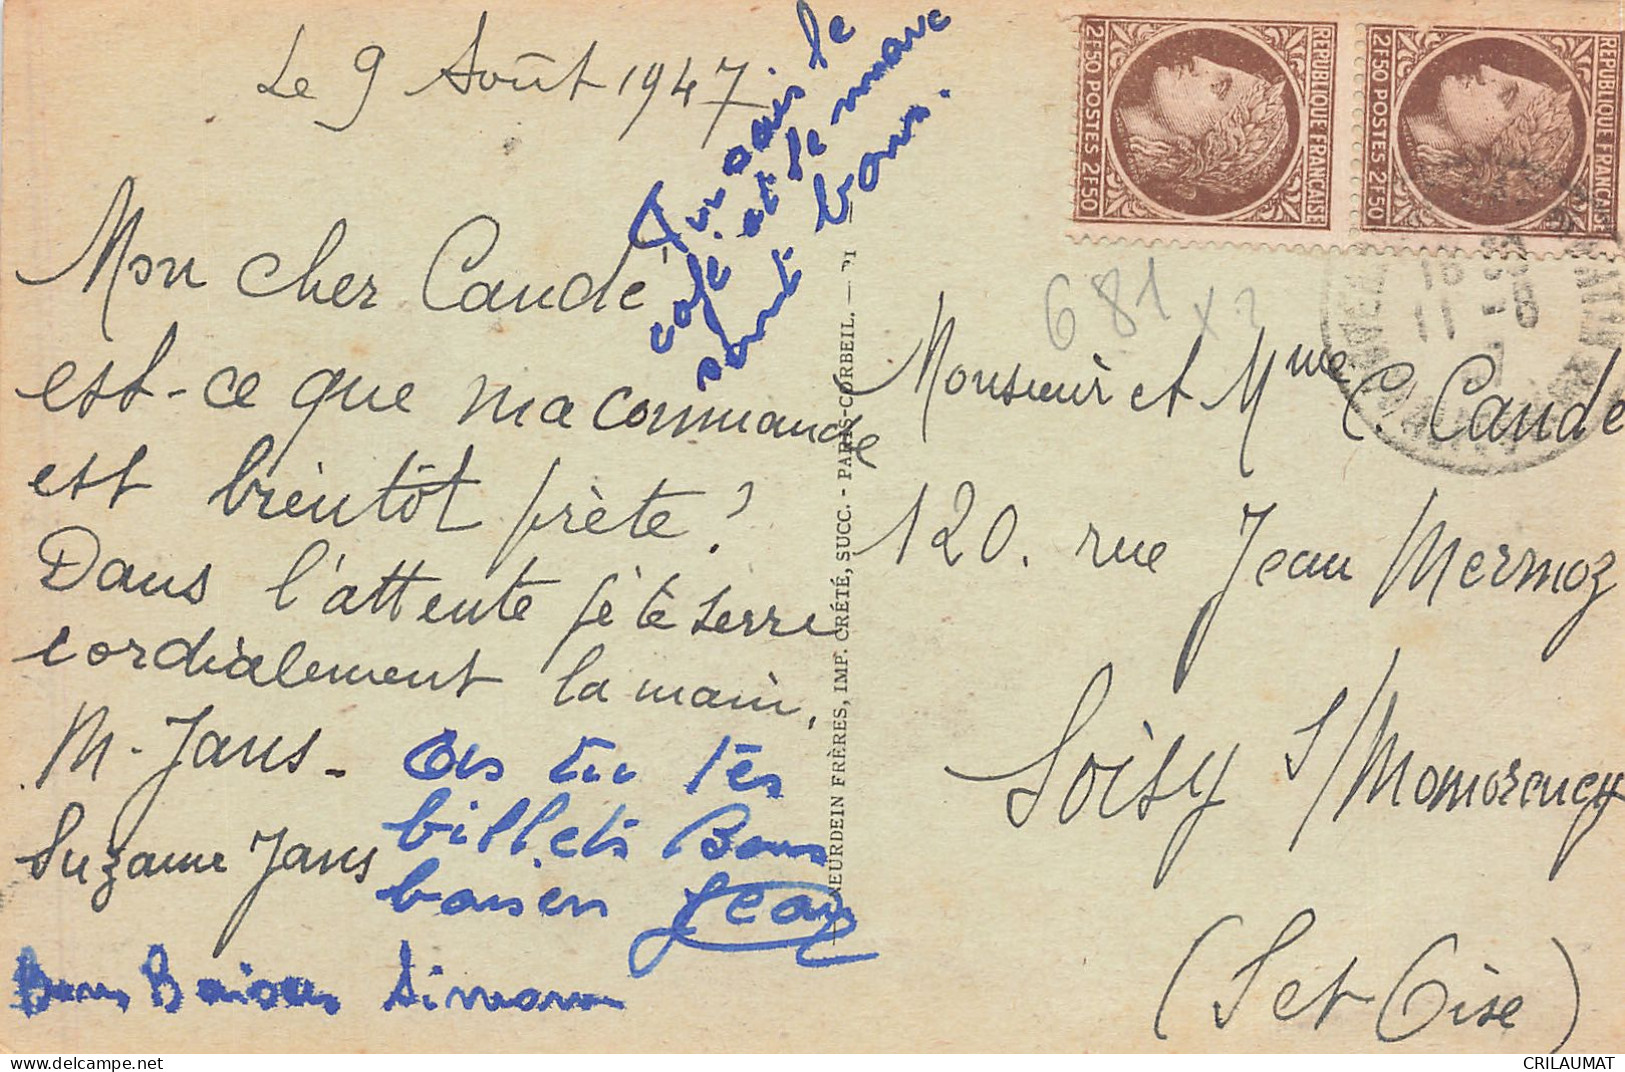 Le 9 Août 1947
Tu sais le
café et le marc
sont bons.
Mon cher Caude
est-ce que ma commande
est bientôt prète ?
Dans l'attente je te serre
cordialement la main.
M. Jans -
Suzanne Jans
As tu tes
billets Bons
baisers Jean
Bons Baisers Simone
NEURDEIN FRÈRES, IMP. CRÉTÉ, SUCC. - PARIS-CORBEIL.
RÉPUBLIQUE FRANÇAISE
2F50 POSTES 2F50
RÉPUBLIQUE FRANÇAISE
2F50 POSTES 2F50
681 x 2
Monsieur et Mme C. Caude
120. rue Jean Mermoz
Soisy s/Momorency
(Set Oise)
CRILAUMAT